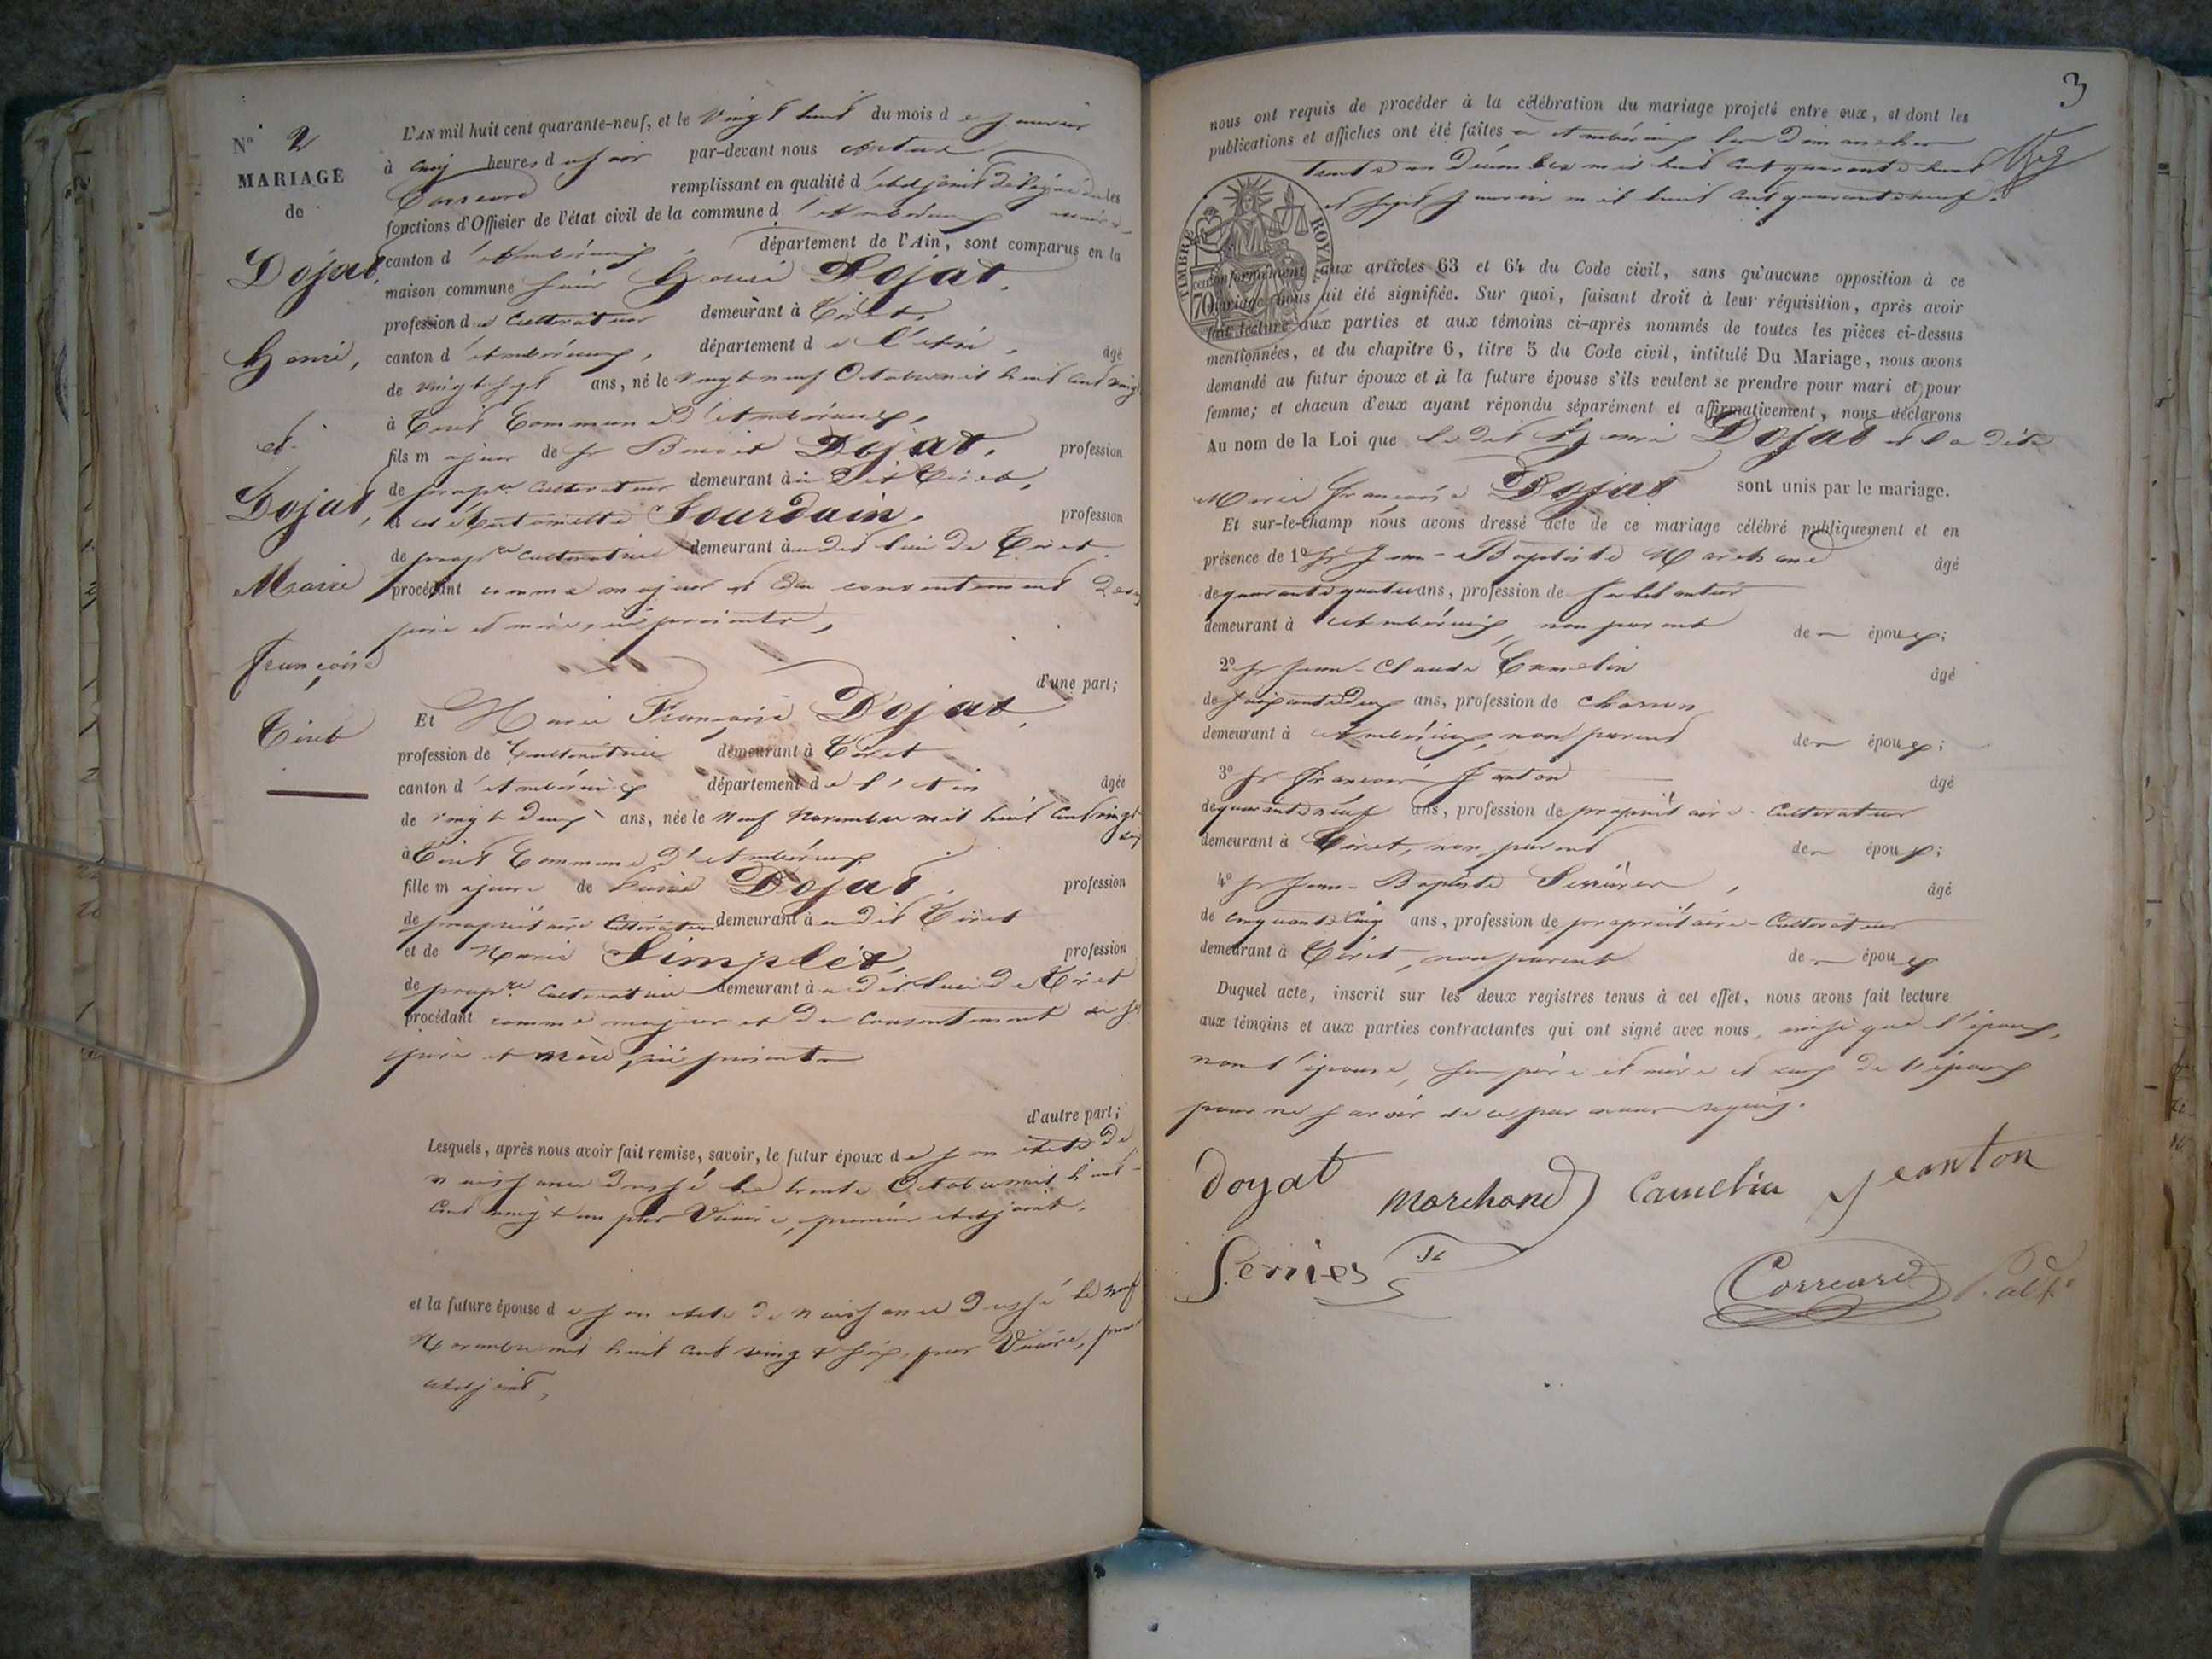 N° 2
MARIAGE
de
Dojat
Henri,
et
Dojat,
Marie
Françoise
Tiret
L'AN mil huit cent quarante-neuf, et le vingt huit du mois de Janvier
à cinq heures du soir par-devant nous Antime
Correard remplissant en qualité d'adjoint délégué les
fonctions d'Officier de l'état civil de la commune d'Ambérieux
canton d'Ambérieux département de l'Ain, sont comparus en la
maison commune sieur Henri Dojat,
profession de Cultivateur demeurant à Tiret,
canton d'Ambérieux, département de l'Ain, âgé
de vingt sept ans, né le vingt neuf Octobre mil huit cent vingt
à Tiret Commune d'Ambérieux,
fils majeur de sr Benoit Dojat, profession
de propre Cultivateur demeurant à dit Tiret,
et de Antoinette Jourdain, profession
de propre Cultivatrice demeurant à dit lieu de Tiret.
procédant comme majeur et du consentement de ses
père et mère, ici présents,
d'une part;
Et Marie Françoise Dojat,
profession de Cultivatrice demeurant à Tiret
canton d'Ambérieux département de l'Ain âgée
de vingt deux ans, née le neuf Novembre mil huit cent vingt
six
à Tiret Commune d'Ambérieux
fille majeure de Dojat, profession
de propriétaire Cultivateur demeurant à dit Tiret
et de Marie Simplet, profession
de propre Cultivatrice demeurant à dit lieu de Tiret
procédant comme majeure et du Consentement de ses
père et mère, ici présents
d'autre part;
Lesquels, après nous avoir fait remise, savoir, le futur époux de son acte de
naissance dressé le trente Octobre mil huit
cent vingt un par Vicaire, premier adjoint,
et la future épouse de son acte de naissance dressé le neuf
Novembre mil huit cent vingt six, par Vicaire, premr
adjoint,
3
nous ont requis de procéder à la célébration du mariage projeté entre eux, et dont les
publications et affiches ont été faites à Ambérieux les dimanches
trente un Décembre mil huit cent quarante huit
et sept Janvier mil huit cent quarante neuf.
TIMBRE ROYAL
70
conformément aux articles 63 et 64 du Code civil, sans qu'aucune opposition à ce
mariage nous ait été signifiée. Sur quoi, faisant droit à leur réquisition, après avoir
fait lecture aux parties et aux témoins ci-après nommés de toutes les pièces ci-dessus
mentionnées, et du chapitre 6, titre 5 du Code civil, intitulé Du Mariage, nous avons
demandé au futur époux et à la future épouse s'ils veulent se prendre pour mari et pour
femme; et chacun d'eux ayant répondu séparément et affirmativement, nous déclarons
Au nom de la Loi que le dit Henri Dojat et la dite
Marie Françoise Dojat sont unis par le mariage.
Et sur-le-champ nous avons dressé acte de ce mariage célébré publiquement et en
présence de 1° sr Jean-Baptiste Marchand âgé
de quarante quatre ans, profession de ferblantier
demeurant à Ambérieux, non parent de époux;
2° sr Jean-Claude Camelin âgé
de soixante deux ans, profession de charron
demeurant à Ambérieux, non parent de époux;
3° sr François Janton âgé
de quarante neuf ans, profession de propriétaire-Cultivateur
demeurant à Tiret, non parent de époux;
4° sr Jean-Baptiste Serrières, âgé
de cinquante cinq ans, profession de propriétaire-Cultivateur
demeurant à Tiret, non parent de époux
Duquel acte, inscrit sur les deux registres tenus à cet effet, nous avons fait lecture
aux témoins et aux parties contractantes qui ont signé avec nous, ainsi que l'époux,
non l'épouse, ses père et mère et ceux de l'époux
pour ne savoir de ce par nous requis.
Doyat Marchand Camelin Jeanton
Serries
Correard